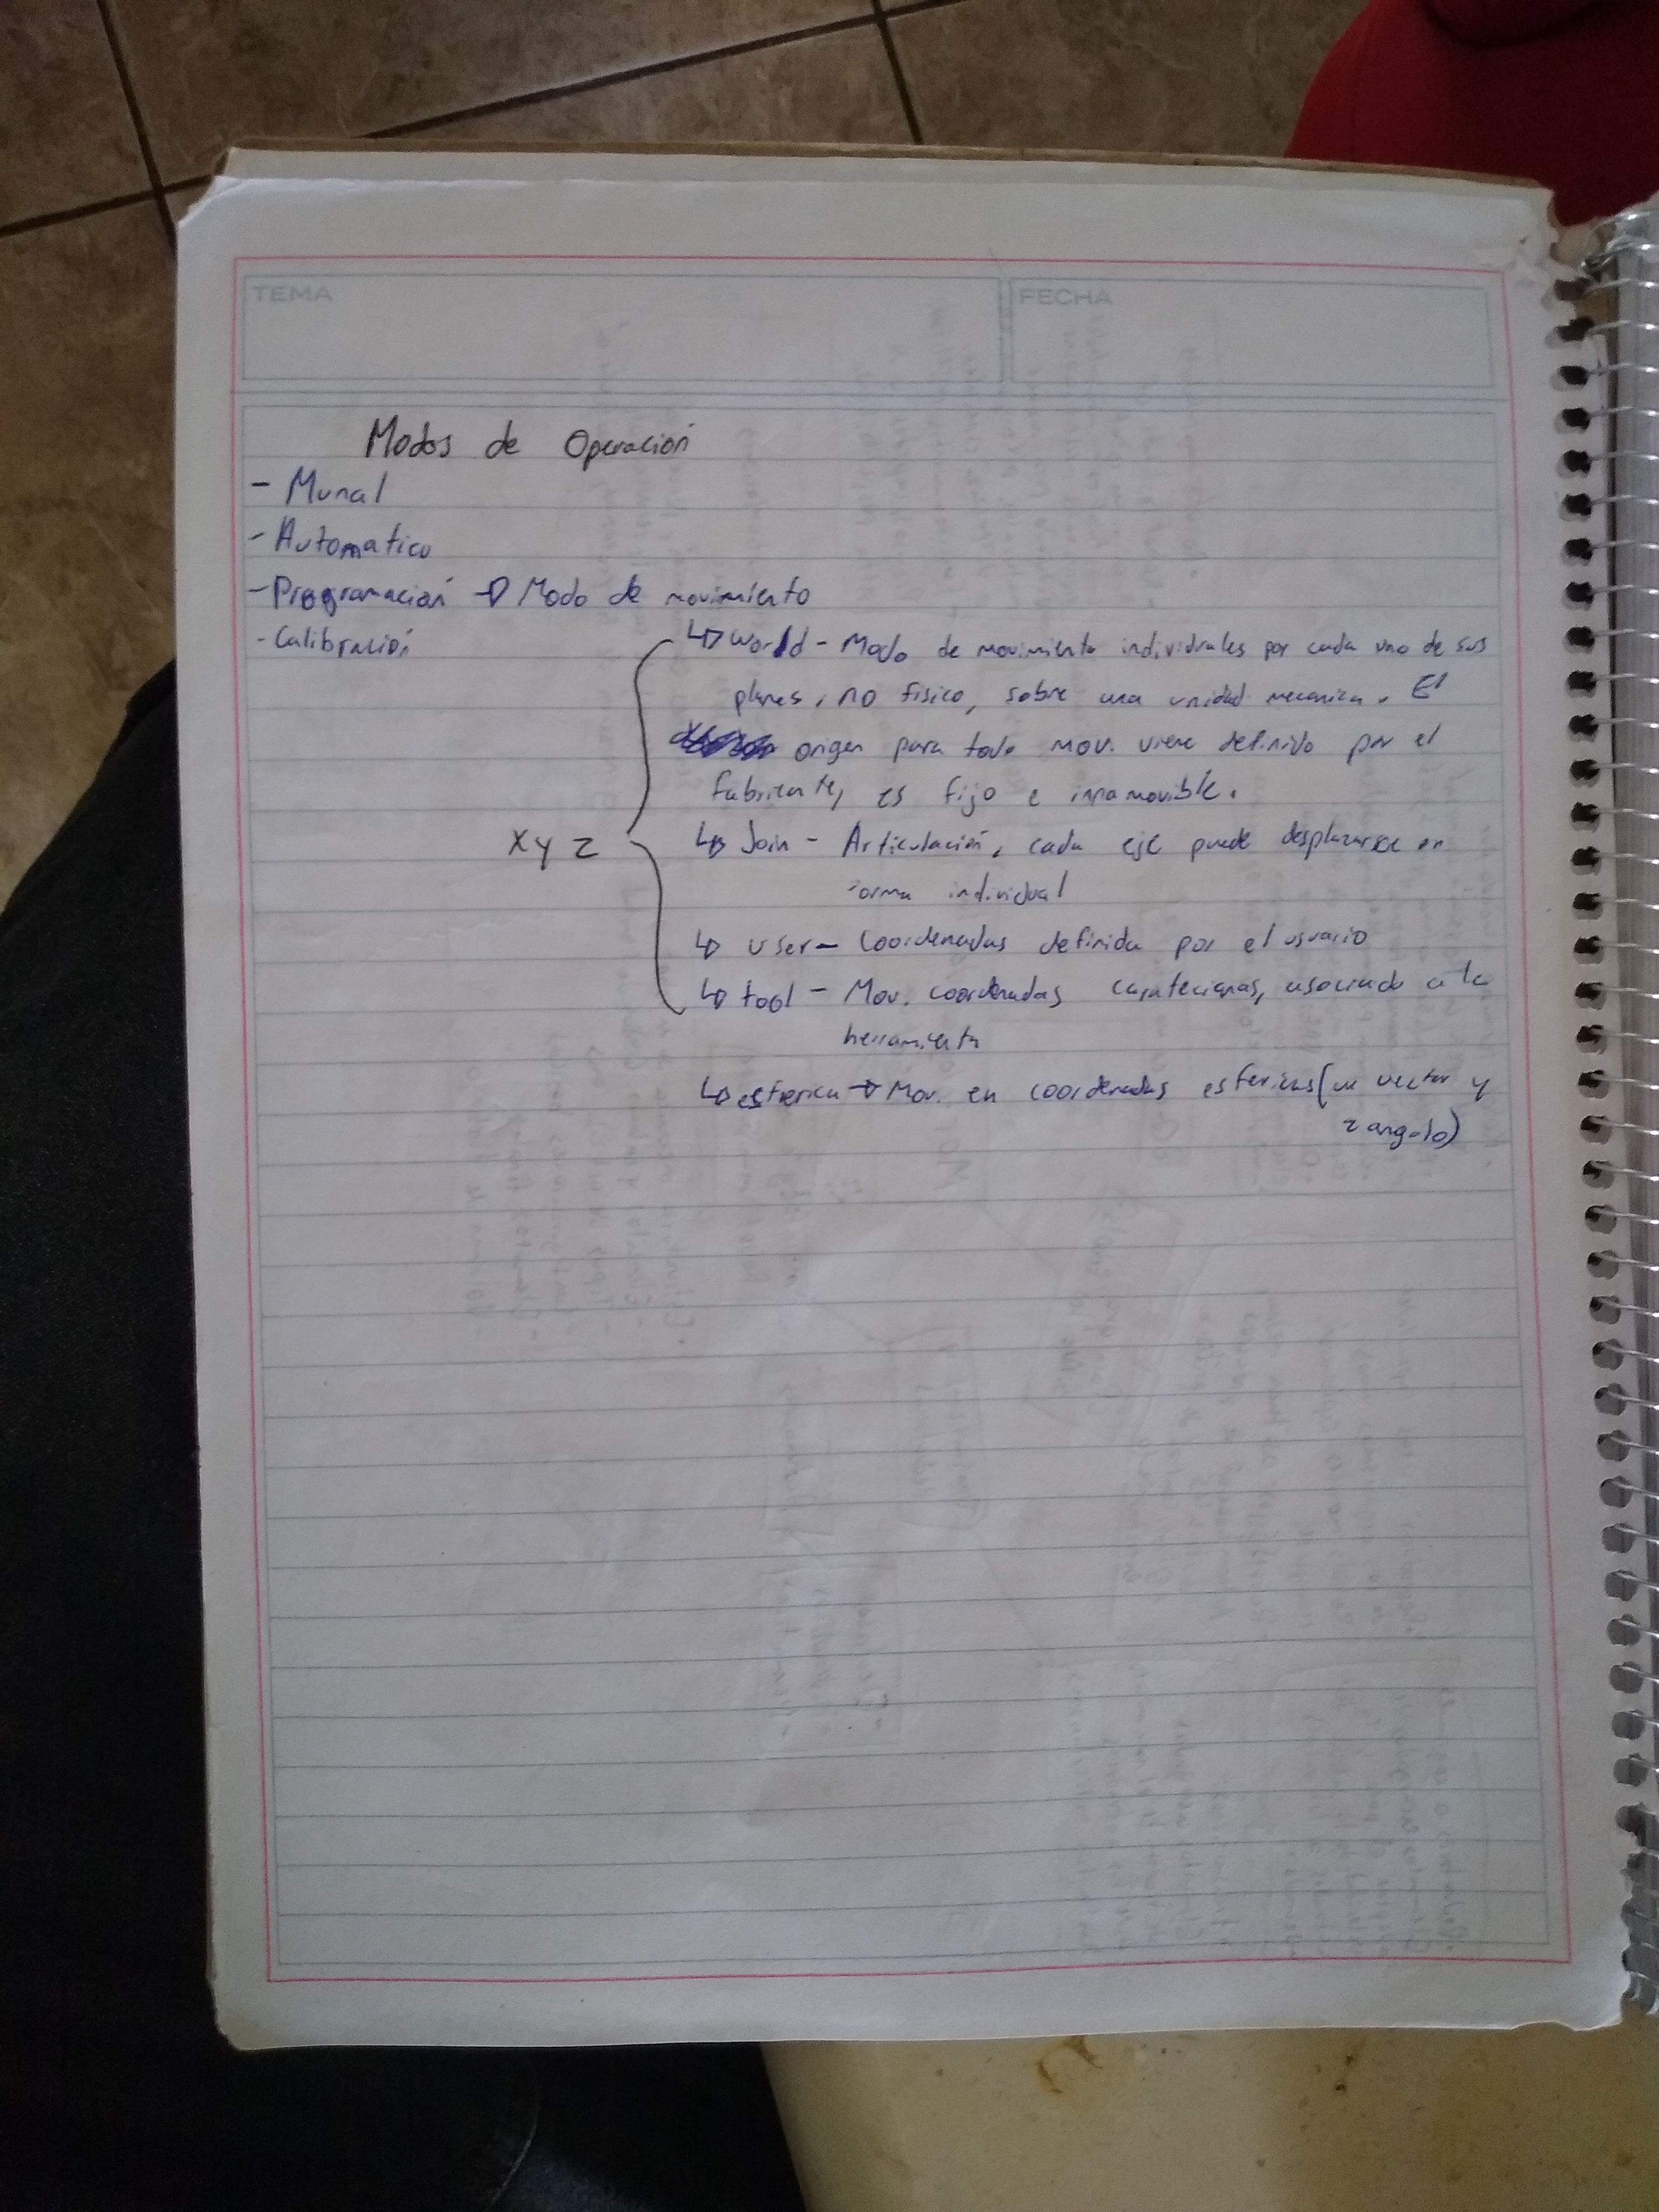 TEMA
FECHA
Modos de Operación
- Munal
- Automatico
- Programación → Modo de movimiento
- Calibración
↳ World - Modo de movimiento individuales por cada uno de sus
planes, no fisico, sobre una unidad mecanica. El
origen para todo mov. viene definido por el
fabricante, es fijo e innamovible.
xyz
↳ Join - Articulación, cada eje puede desplazarse en
forma individual
↳ User - Coordenadas definida por el usuario
↳ tool - Mov. coordenadas cartecianas, asociado a la
herramienta
↳ esferica → Mov. en coordenadas esfericas (un vector y
2 angulo)